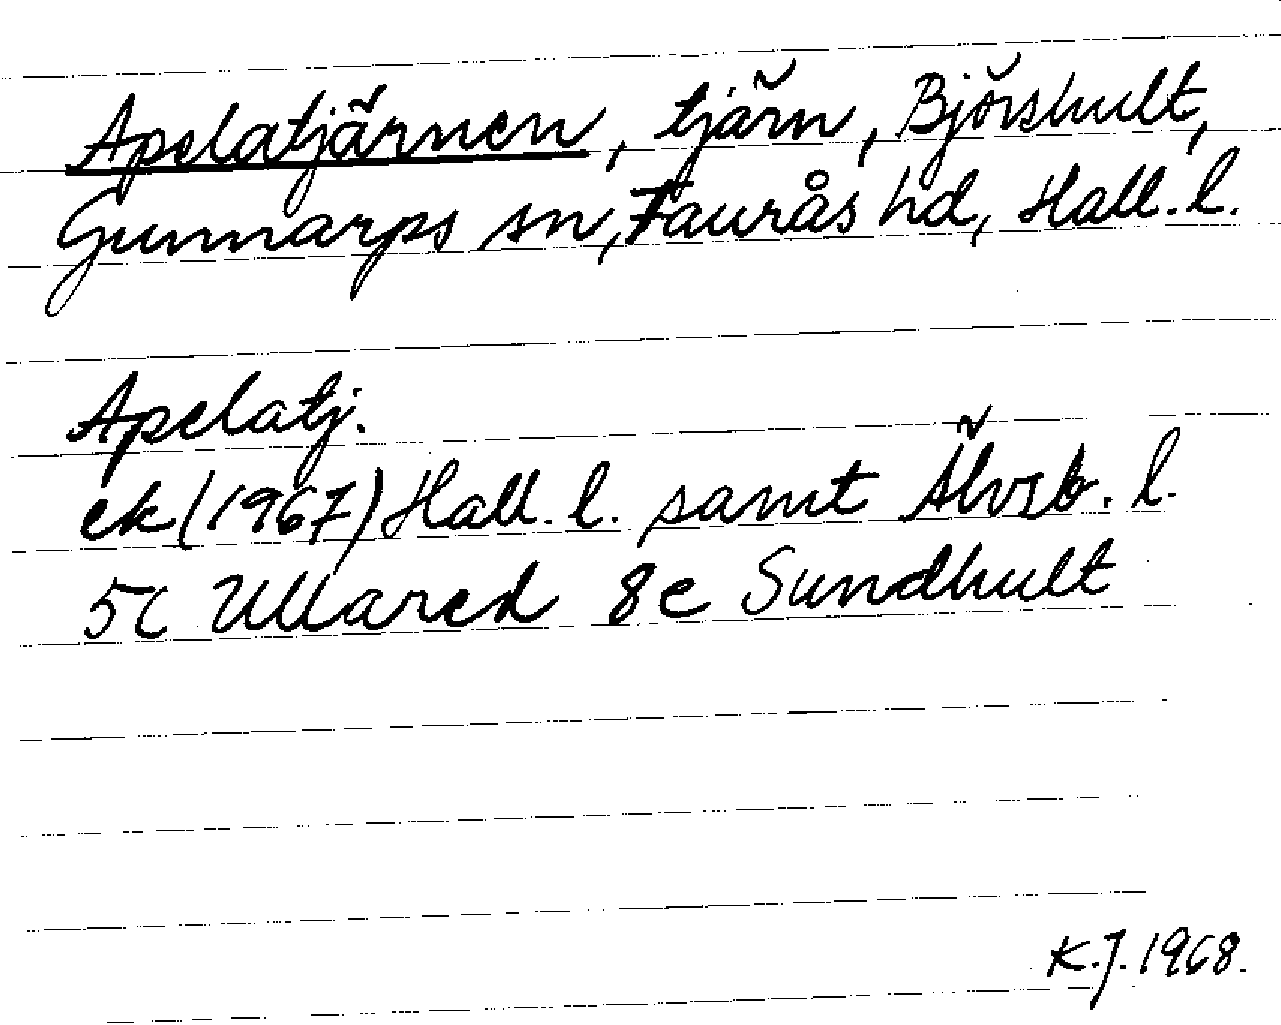 Apelatjärnen, tjärn, Björshult,
Gunnarps sn, Faurås hd, Hall. l.
Apelatj.
ek (1967) Hall. l. samt Älvsb. l.
5C Ullared 8c Sundhult
K.J. 1968.